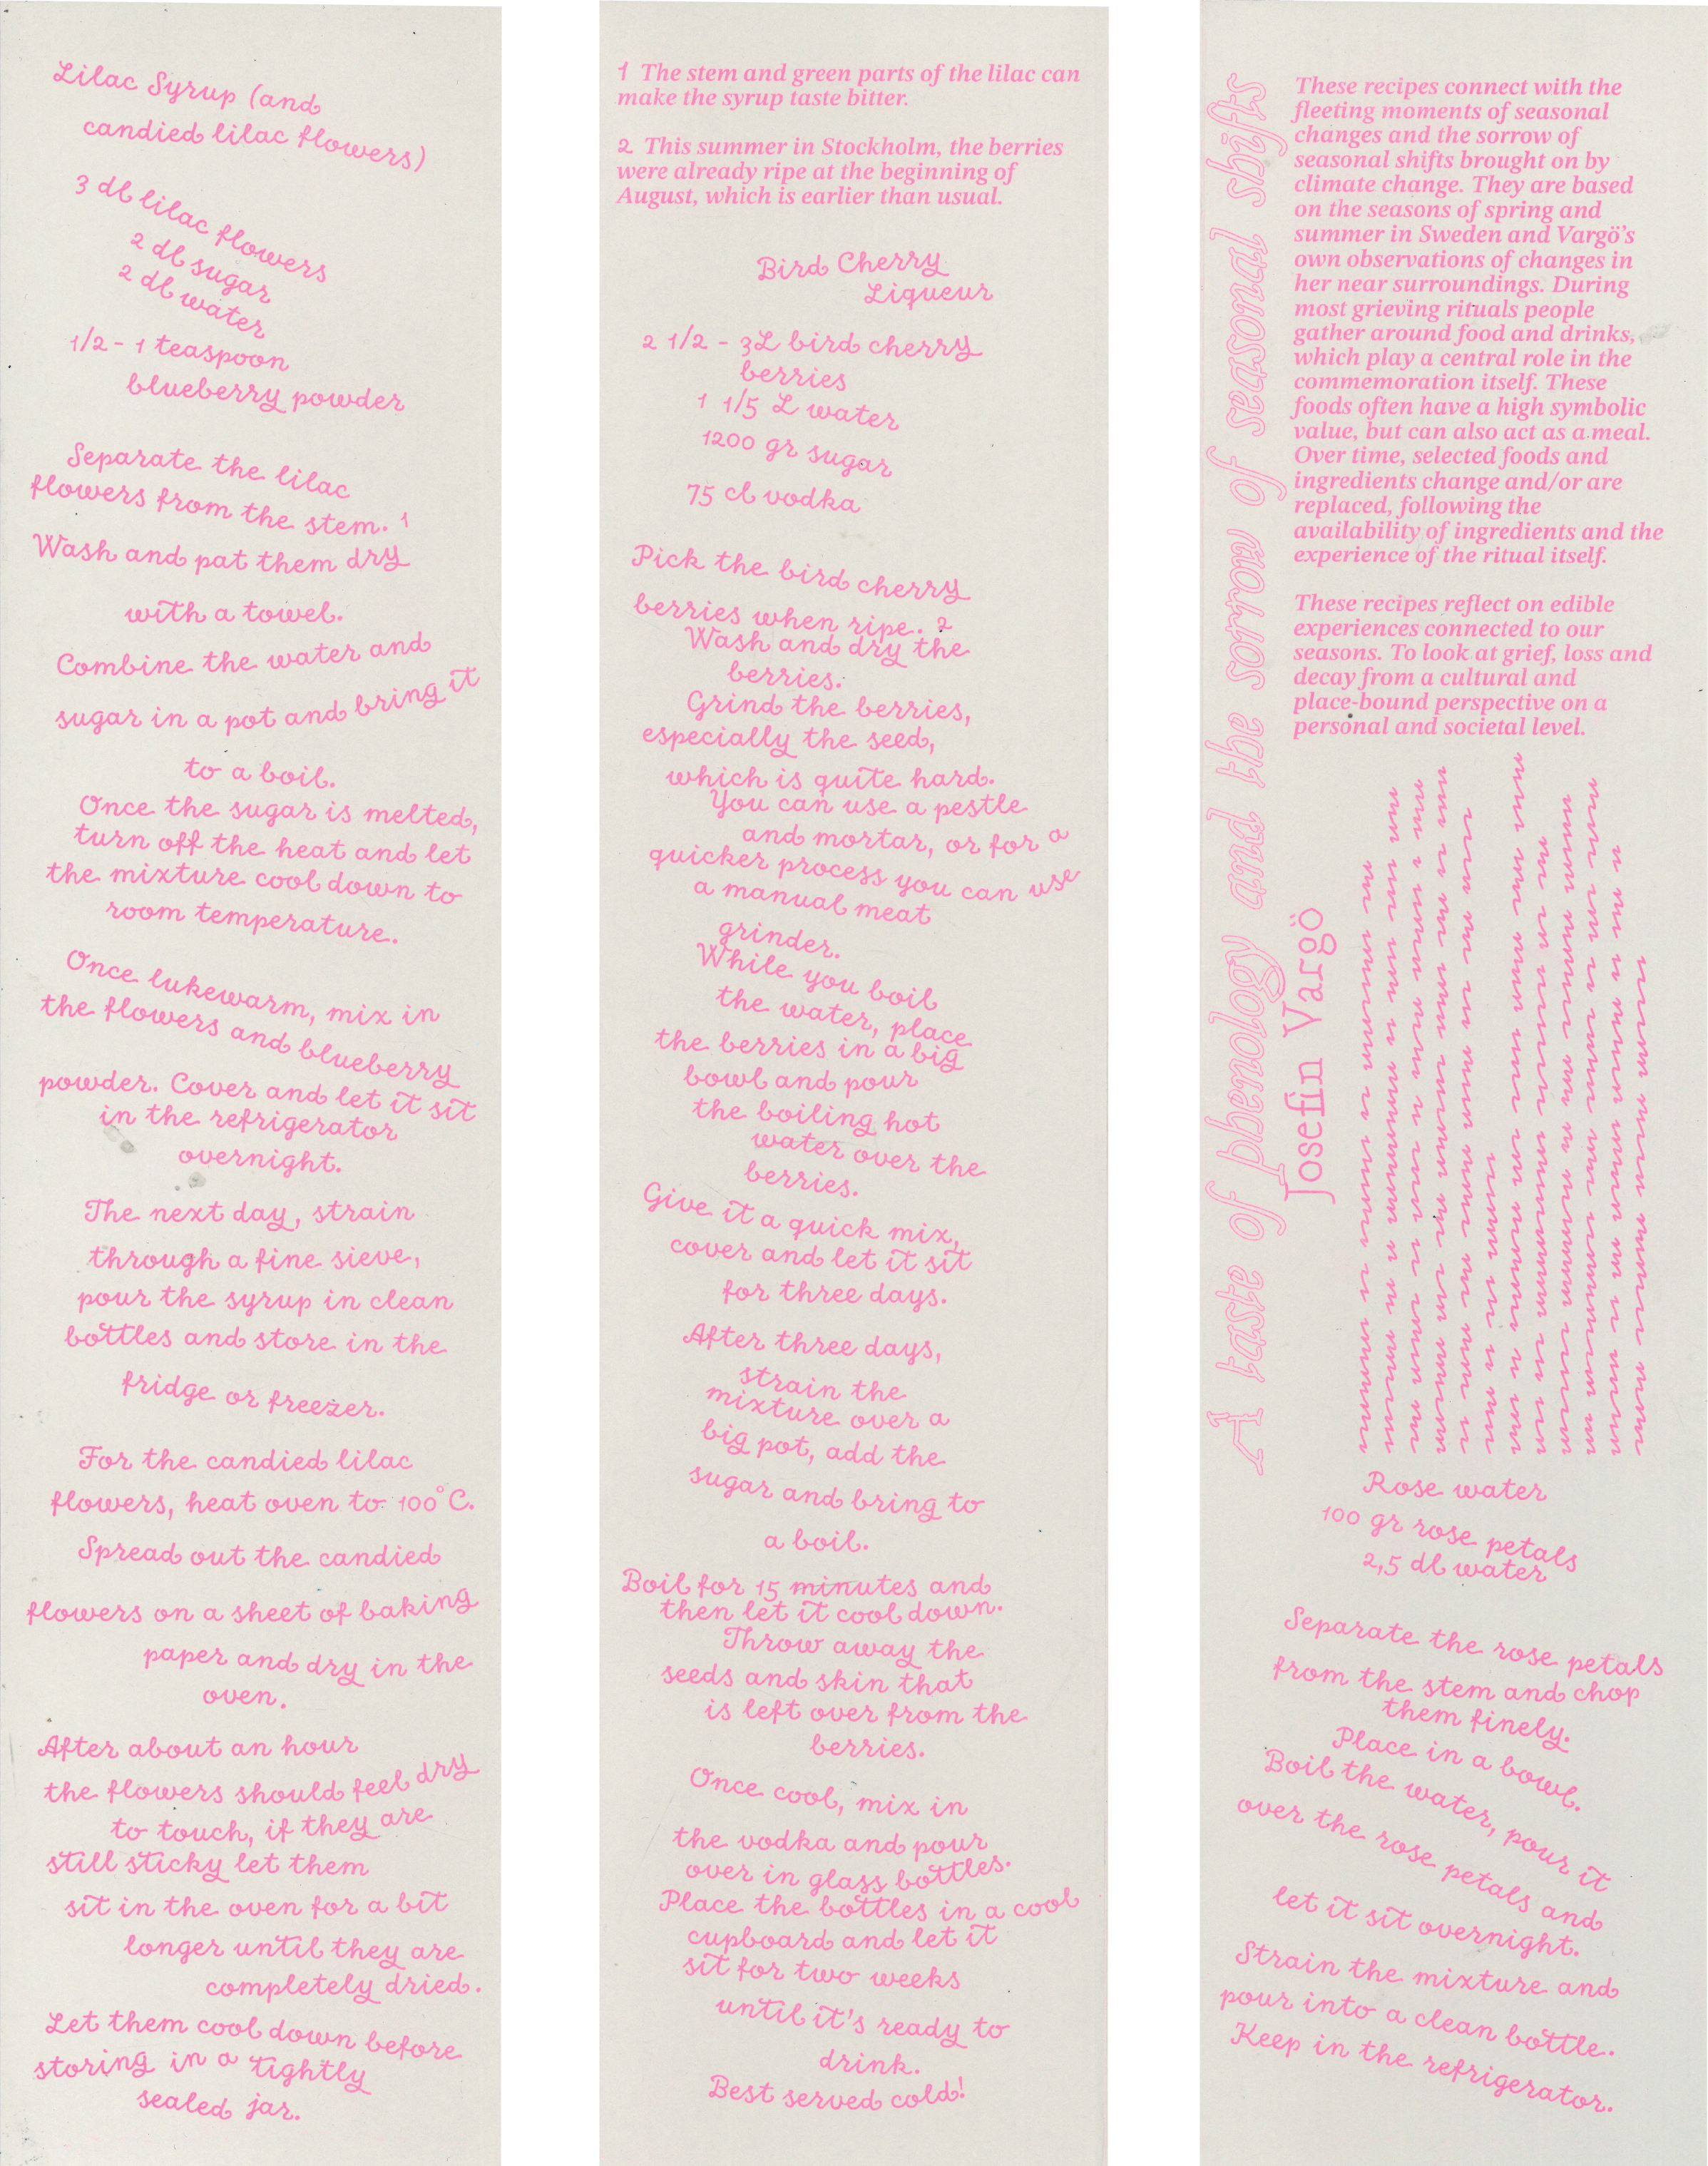 Lilac Syrup (and
candied lilac flowers)
3 dl lilac flowers
2 dl sugar
2 dl water
1/2 - 1 teaspoon
blueberry powder
Separate the lilac
flowers from the stem. 1
Wash and pat them dry
with a towel.
Combine the water and
sugar in a pot and bring it
to a boil.
Once the sugar is melted,
turn off the heat and let
the mixture cool down to
room temperature.
Once lukewarm, mix in
the flowers and blueberry
powder. Cover and let it sit
in the refrigerator
overnight.
The next day, strain
through a fine sieve,
pour the syrup in clean
bottles and store in the
fridge or freezer.
For the candied lilac
flowers, heat oven to 100°C.
Spread out the candied
flowers on a sheet of baking
paper and dry in the
oven.
After about an hour
the flowers should feel dry
to touch, if they are
still sticky let them
sit in the oven for a bit
longer until they are
completely dried.
Let them cool down before
storing in a tightly
sealed jar.
1 The stem and green parts of the lilac can
make the syrup taste bitter.
2 This summer in Stockholm, the berries
were already ripe at the beginning of
August, which is earlier than usual.
Bird Cherry
Liqueur
2 1/2 - 3L bird cherry
berries
1 1/5 L water
1200 gr sugar
75 cl vodka
Pick the bird cherry
berries when ripe. 2
Wash and dry the
berries.
Grind the berries,
especially the seed,
which is quite hard.
You can use a pestle
and mortar, or for a
quicker process you can use
a manual meat
grinder.
While you boil
the water, place
the berries in a big
bowl and pour
the boiling hot
water over the
berries.
Give it a quick mix,
cover and let it sit
for three days.
After three days,
strain the
mixture over a
big pot, add the
sugar and bring to
a boil.
Boil for 15 minutes and
then let it cool down.
Throw away the
seeds and skin that
is left over from the
berries.
Once cool, mix in
the vodka and pour
over in glass bottles.
Place the bottles in a cool
cupboard and let it
sit for two weeks
until it's ready to
drink.
Best served cold!
A taste of phenology and the sorrow of seasonal shifts
Josefin Vargö
These recipes connect with the
fleeting moments of seasonal
changes and the sorrow of
seasonal shifts brought on by
climate change. They are based
on the seasons of spring and
summer in Sweden and Vargö's
own observations of changes in
her near surroundings. During
most grieving rituals people
gather around food and drinks,
which play a central role in the
commemoration itself. These
foods often have a high symbolic
value, but can also act as a meal.
Over time, selected foods and
ingredients change and/or are
replaced, following the
availability of ingredients and the
experience of the ritual itself.
These recipes reflect on edible
experiences connected to our
seasons. To look at grief, loss and
decay from a cultural and
place-bound perspective on a
personal and societal level.
Rose water
100 gr rose petals
2,5 dl water
Separate the rose petals
from the stem and chop
them finely.
Place in a bowl.
Boil the water, pour it
over the rose petals and
let it sit overnight.
Strain the mixture and
pour into a clean bottle.
Keep in the refrigerator.